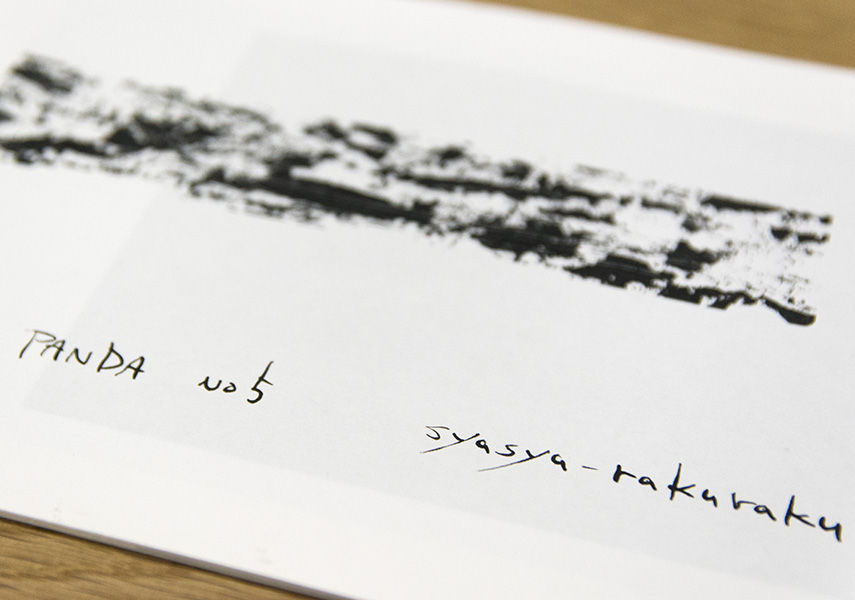 PANDA no5
syasya-rakuraku